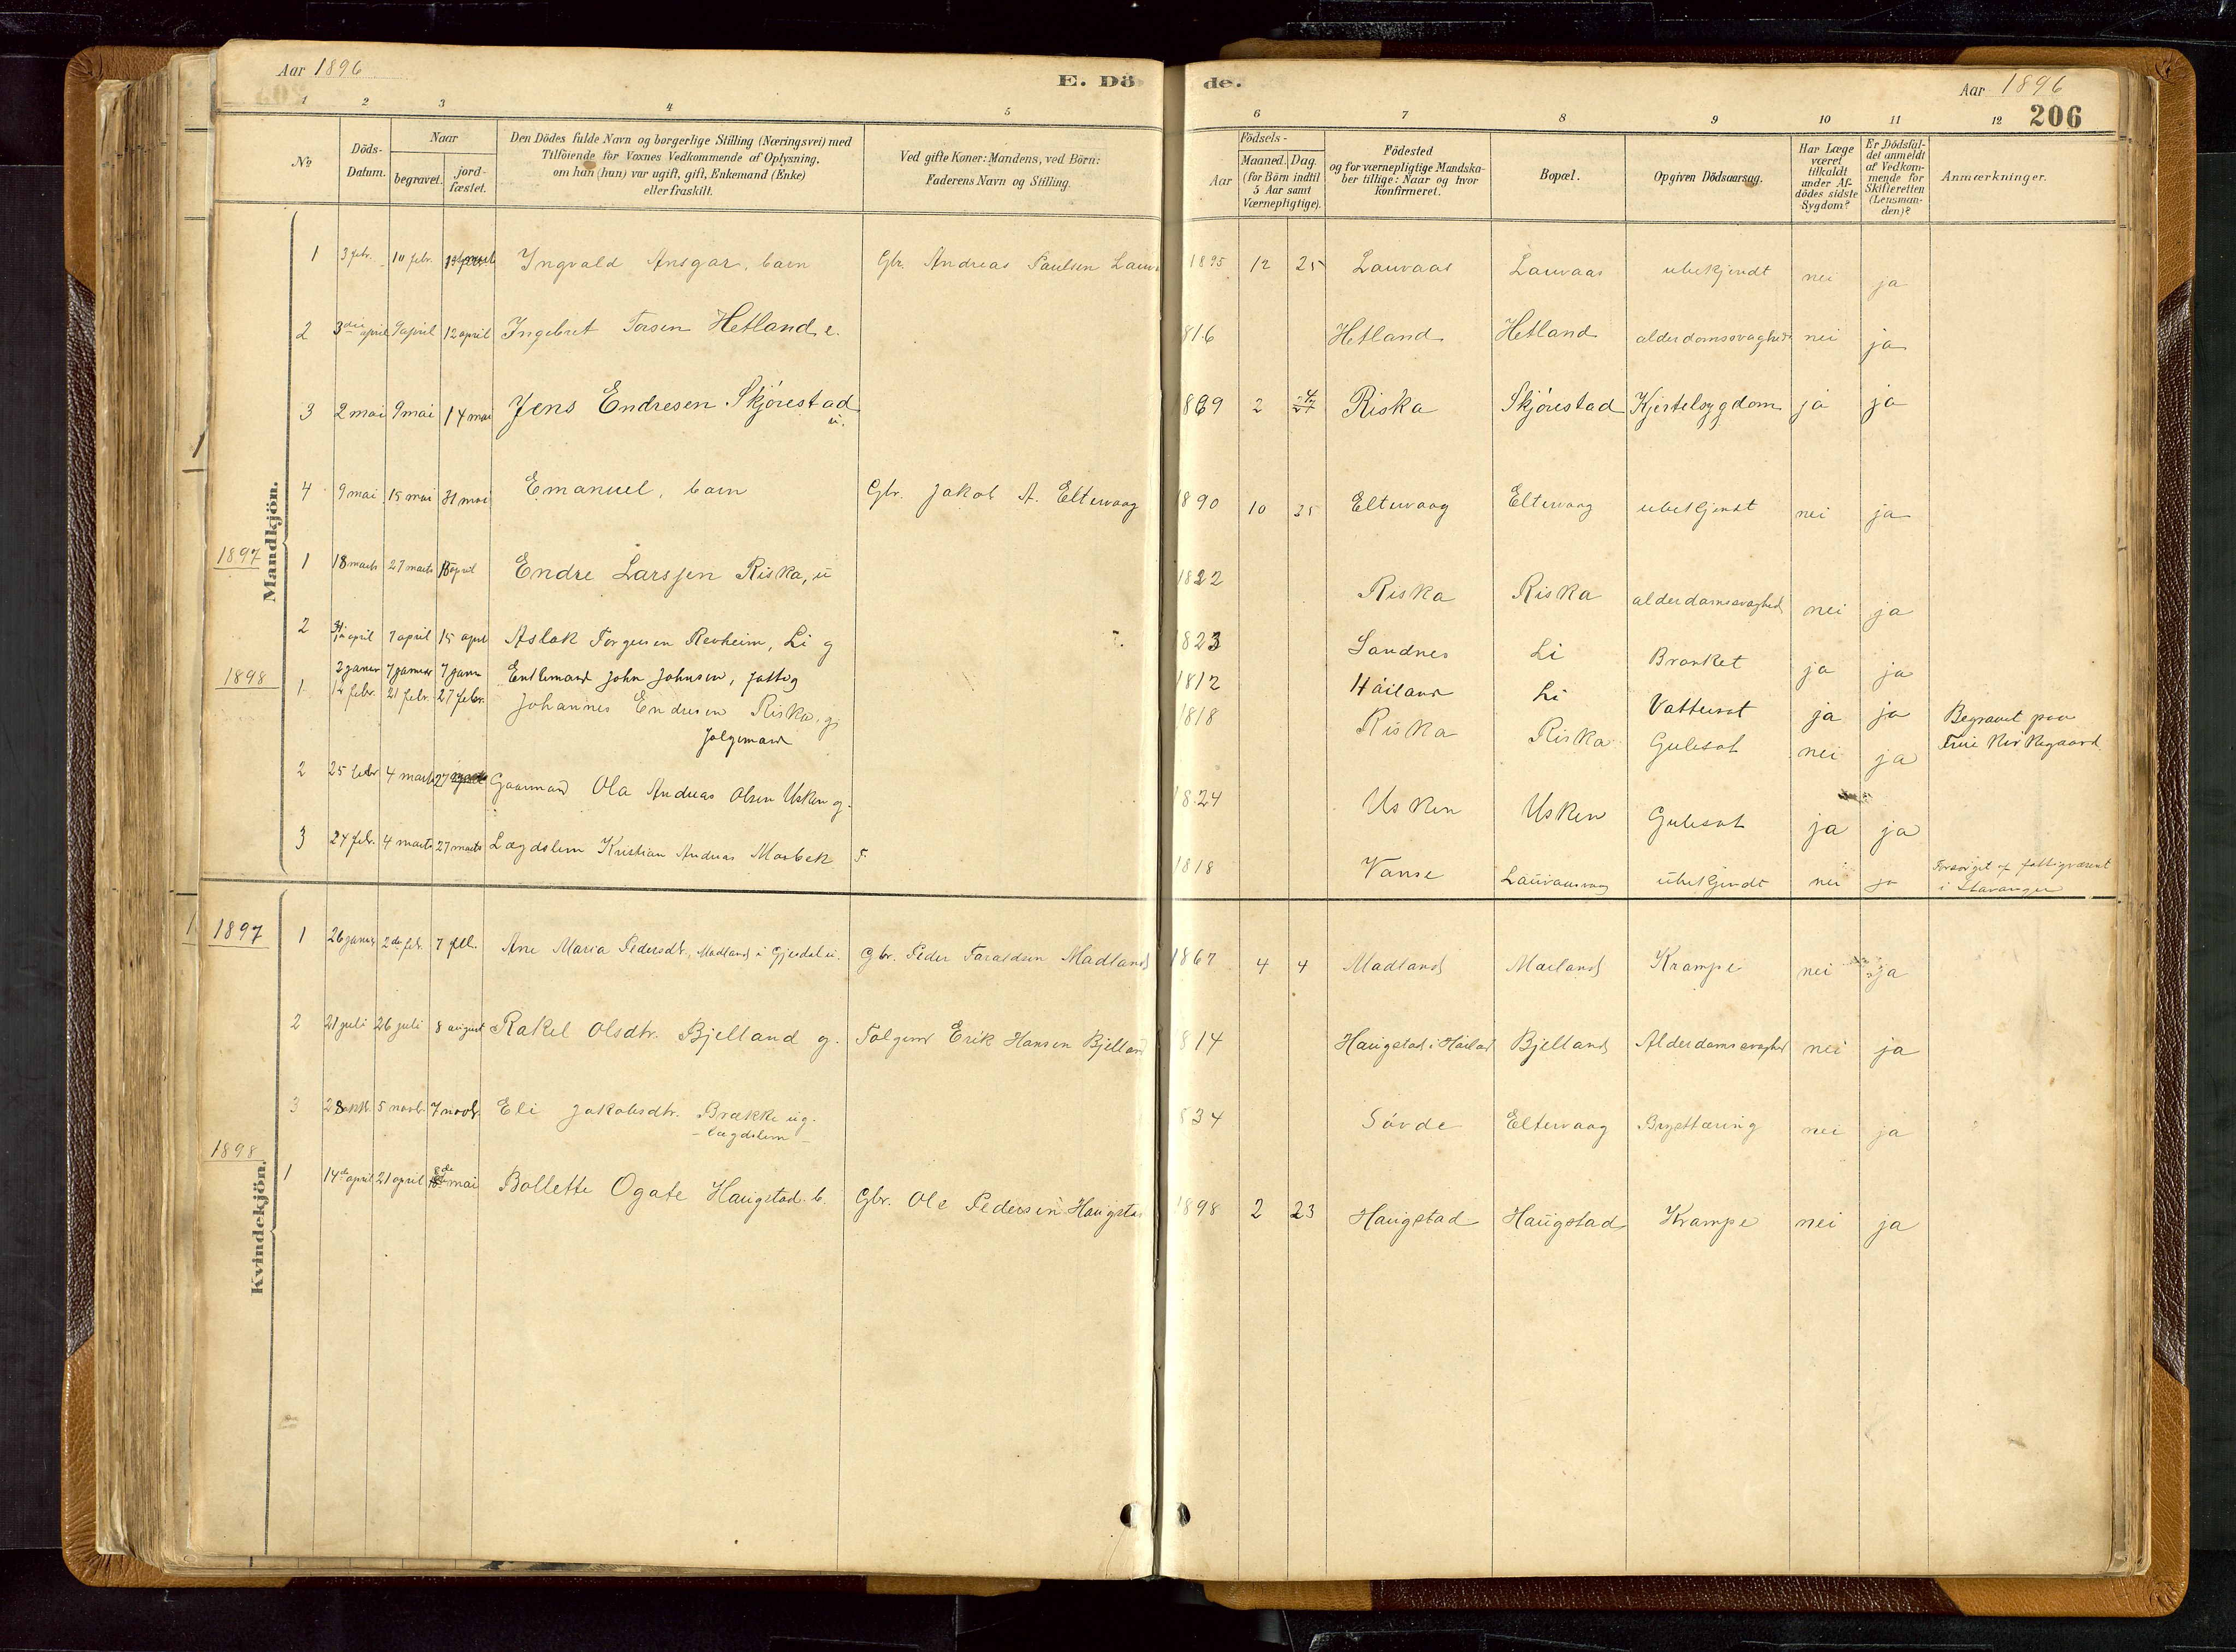 Aar 1896
E. Dö de.
Aar 1896
206
1 2 3 4 5 6 7 8 9 10 11 12
No
Döds-Datum.
Naar
begravet.
jord-fæstet.
Den Dödes fulde Navn og borgerlige Stilling (Næringsvei) med
Tilföiende for Voxnes Vedkommende af Oplysning,
om han (hun) var ugift, gift, Enkemand (Enke)
eller fraskilt.
Ved gifte Koner: Mandens, ved Börn:
Faderens Navn og Stilling.
Födsels-
Aar
Maaned. Dag.
(for Börn indtil
5 Aar samt
Værnepligtige).
Födested
og for værnepligtige Mandska-
ber tillige: Naar og hvor
konfirmeret.
Bopæl.
Opgiven Dödsaarsag.
Har Læge
været
tilkaldt
under Af-
dödes sidste
Sygdom?
Er Dödsfal-
det anmeldt
af Vedkom-
mende for
Skifteretten
(Lensman-
den)?
Anmærkninger.
Mandkjön.
1 3 febr. 10 febr. Ingvald Ansgar, barn Gbr. Andreas Paulsen Lauv 1895 12 25 Lauvaas Lauvaas ubekjendt nei ja
2 3die april 9 april 12 april Ingebret Torsen Hetland e. 1816 Hetland Hetland alderdomssvaghed nei ja
3 2 mai 9 mai 14 mai Jens Endresen Skjörestad u. 1869 2 Riska Skjörestad Kjertelsygdom ja ja
4 9 mai 15 mai 31 mai Emanuel, barn Gbr. Jakob A. Eltervaag 1890 10 25 Eltervaag Eltervaag ubekjendt nei ja
1897
1 18 marts 27 marts 18 april Endre Larssen Riska, u 1822 Riska Riska alderdomssvaghed nei ja
2 april 7 april 15 april Aslak Torgersen Revheim, Li g 1823 Sandnes Li Bronket ja ja
1898
2 januar 7 januar 7 janu Enkemand John Johnsen, fattig 1812 Håiland Li Vattersot ja ja Begravet paa
Frue Kirkegaard
1 12 febr. 21 febr. 27 febr. Johannes Endresen Riska, g. 1818 Riska Riska Gulesot nei ja
folgemand
2 25 febr 4 marts 27 Gaarmand Ola Andreas Olsen Usken g. 1824 Usken Usken Gulesot ja ja
3 24 febr. 4 marts 27 marts Lægdslem Kristian Andreas Morbek 1818 Vanse Lauvaasvaag ubekjendt nei ja Forsörget af fattigvæsenet
i Stavanger
Kvindekjön.
1897
1 26 januar 2den febr. 7 feb. Ane Maria Pedersdtr, Madland i Gjesdal u. Gbr. Peder Taraldsen Madland 1867 4 4 Madland Madland Krampe nei ja
2 21 juli 26 juli 8 august Rakel Olsdtr. Bjelland g. Folgem Erik Hansen Bjelland 1814 Haugstad i Höiland Bjelland Alderdomssvaghed nei ja
3 28 oktb. 5 novb. 7 novb. Eli Jakobsdtr. Brække ug. 834 Sövde Eltervaag Brysttæring nei ja
- lægdslem -
1898
1 14de april 21 april 8de mai Bollette Ogate Haugstad. b. Gbr. Ole Pedersen Haugstad 1898 2 23 Haugstad Haugstad Krampe nei ja